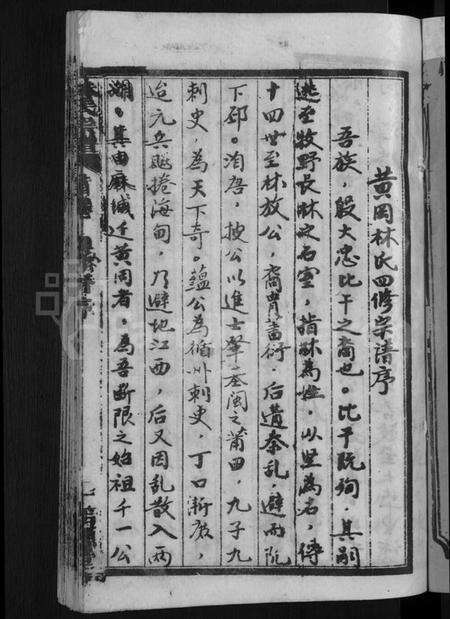 黄冈林氏四修宗谱序
吾族，殷大忠比干之裔也。比干既殉，其嗣
逃至牧野长林之石室，指林为姓，以坚为名，传
十四世至林放公，裔胄蕃衍。后遭秦乱，避而阮
下邳。洎唐，披公以进士肇基闽之莆田，九子九
刺史，为天下奇。蕴公为循州刺史，丁口渐广，
迨元兵飚捲海甸，乃避地江西，后又因乱散入两
湖。其由麻城迁黄冈者，为吾断限之始祖千一公